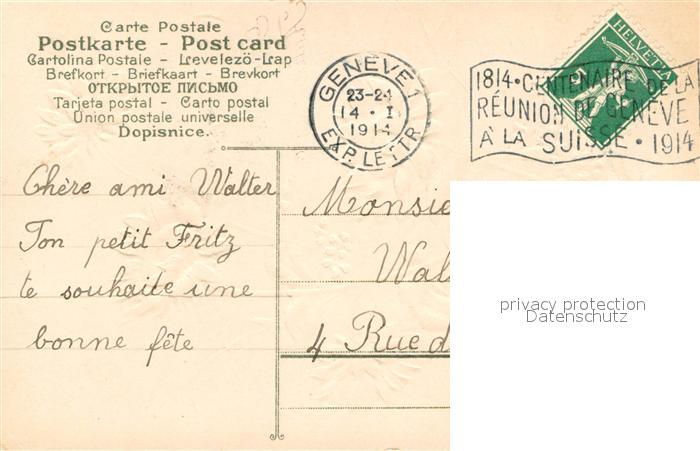 Carte Postale
Postkarte - Post card
Cartolina Postale - Levelező-Lap
Brefkort - Briefkaart - Brevkort
ОТКРЫТОЕ ПИСЬМО
Tarjeta postal - Carto postal
Union postale universelle
Dopisnice.
GENÈVE 1
23-24
14 · I
1914
EXP. LETTR
HELVETIA
1814 · CENTENAIRE DE LA
RÉUNION DE GENÈVE
A LA SUISSE · 1914
Chère ami Walter
Ton petit Fritz
te souhaite une
bonne fête
Monsie
Wal
4 Rue d
privacy protection
Datenschutz